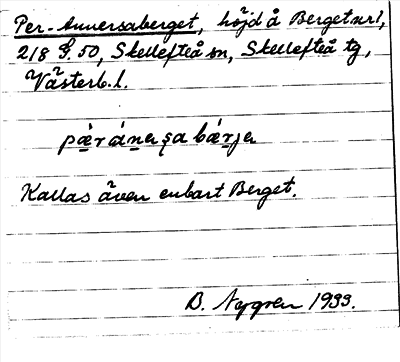 Per-Annersaberget, höjd å Berget nr 1,
218 G. 50, Skellefteå sn, Skellefteå tg,
Västerb. l.
Kallas även enbart Berget.
B. Nygren 1933.